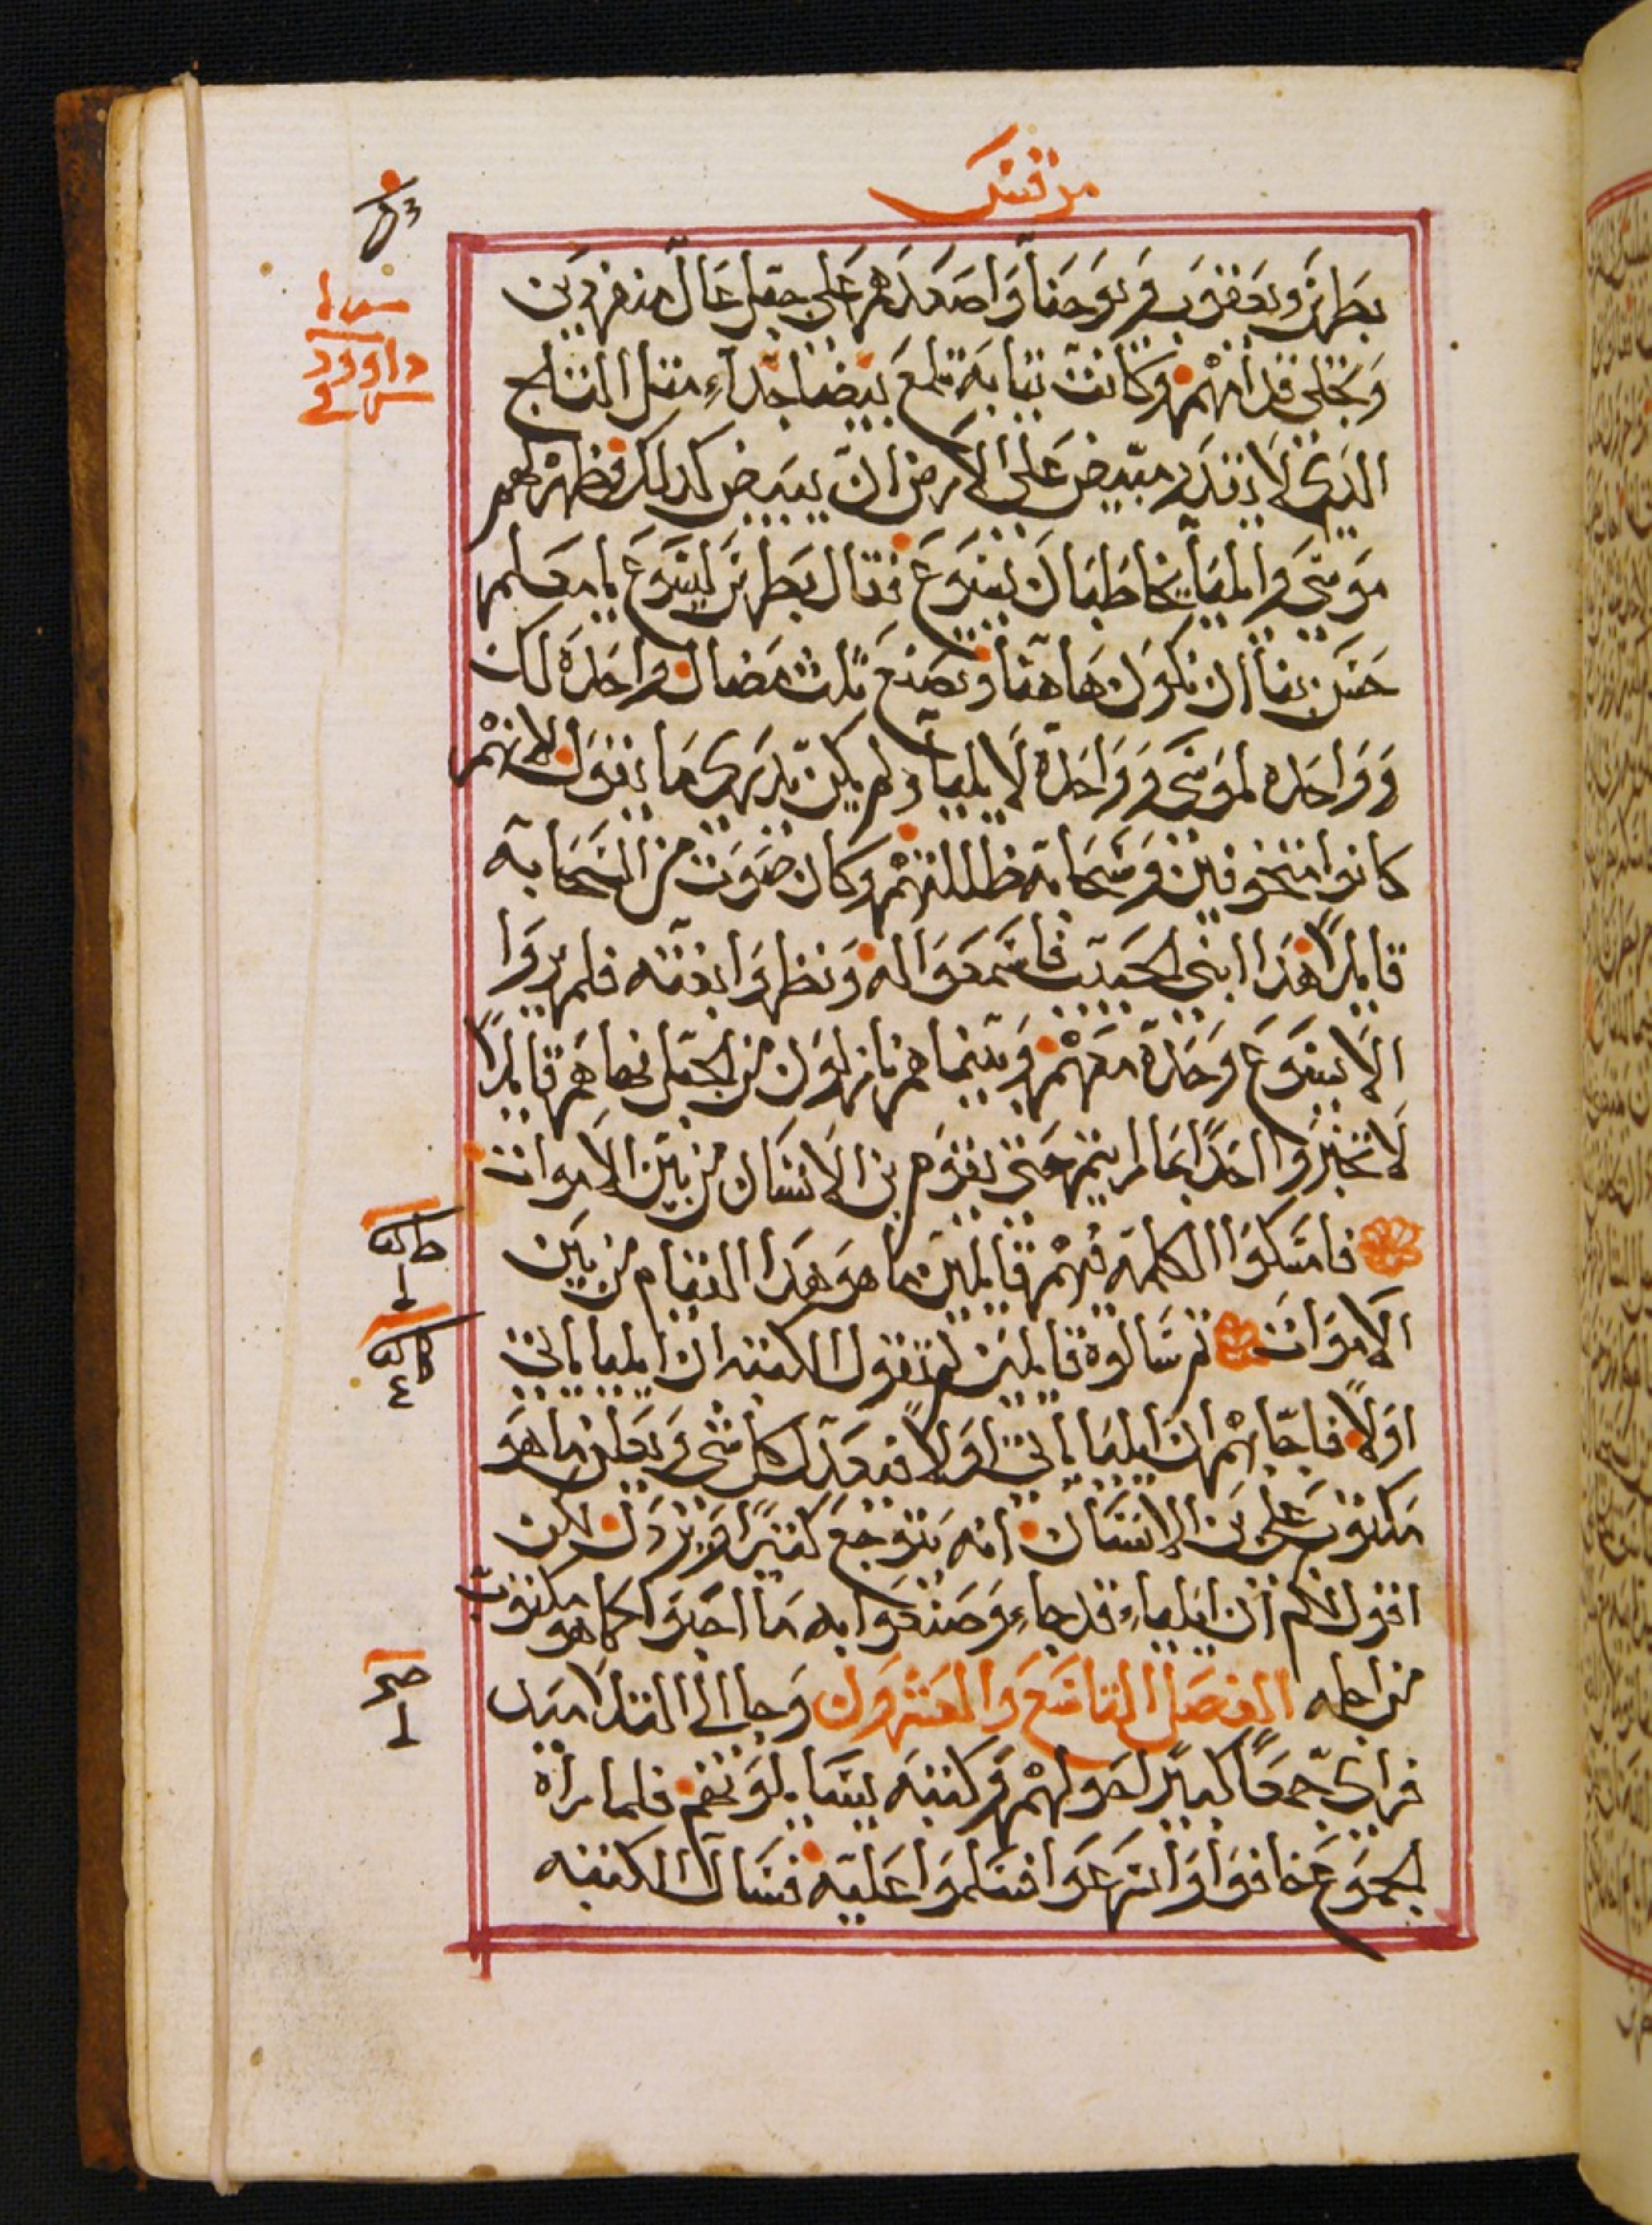 مرقس
بطرس ويعقوب ويوحنا واصعدهم على جبل عال منفردين
وتجلى قدامهم وكانت ثيابه تلمع بيضا جداً مثل الثلج
الدى لا يقدر مبيض على الارض ان يبيض كدلك فظهر لهم
موسى وايليا يخاطبان يسوع فقال بطرس ليسوع يا معلم
حسن بنا ان نكون هاهنا ونصنع ثلث مضال واحدة لك
وواحده لموسى وواحدة لايليا ولم يكن يدرى ما يقول لانهم
كانوا متخوفين وسحابه ظللتهم وكان صوت من السحابه
قايلاً هدا ابنى الحبيب فاسمعوا له ونظروا بغته فلم يروا
الا يسوع وحده معهم وبينما هم نازلون من الجبل نهاهم قايلاً
لا تخبروا احداً بما رايتم حتى يقوم بن الانسان من بين الاموات
فامسكوا الكلمه فيهم قايلين ما هو هدا القيام من بين
الاموات ثم سالوه قايلين لم تقول الكتبه ان ايليا ياتى
اولاً فاجابهم ان ايليا ياتى اولا فيعد كل شى ويعلن ما هو
مكتوب على بن الانسان انه يتوجع كثيراً ويردل لكن
اقول لكم ان ايلياء قد جاء وصنعوا به ما احبوا كما هو مكتوب
من اجله الفصل التاسع والعشرون وجا الى التلاميد
فراى جمعاً كبير احولهم وكتبه يسايلونهم فلما راه
الجموع خافوا واسرعوا فسلموا عليه فسال الكتبه
داوود